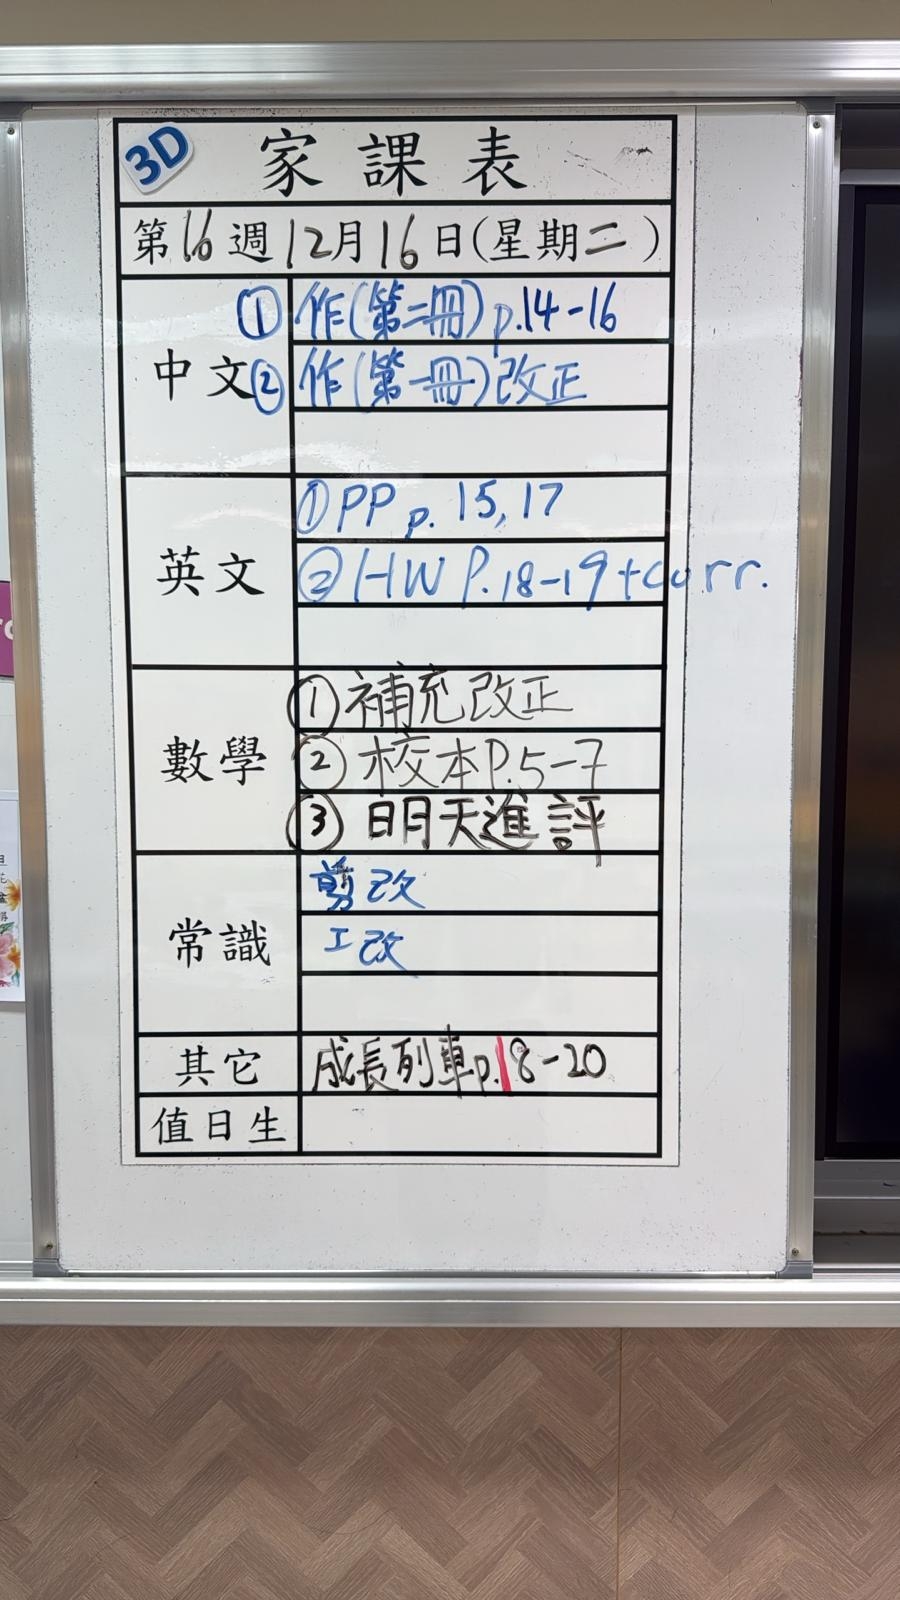 3D 家課表
第16週12月16日(星期二)
中文
① 作(第二冊) p.14-16
② 作(第一冊)改正
英文
① PP p. 15, 17
② HW P.18-19+corr.
數學
① 補充改正
② 校本P.5-7
③ 明天進評
常識
剪改
工改
其它
成長列車p.18-20
值日生